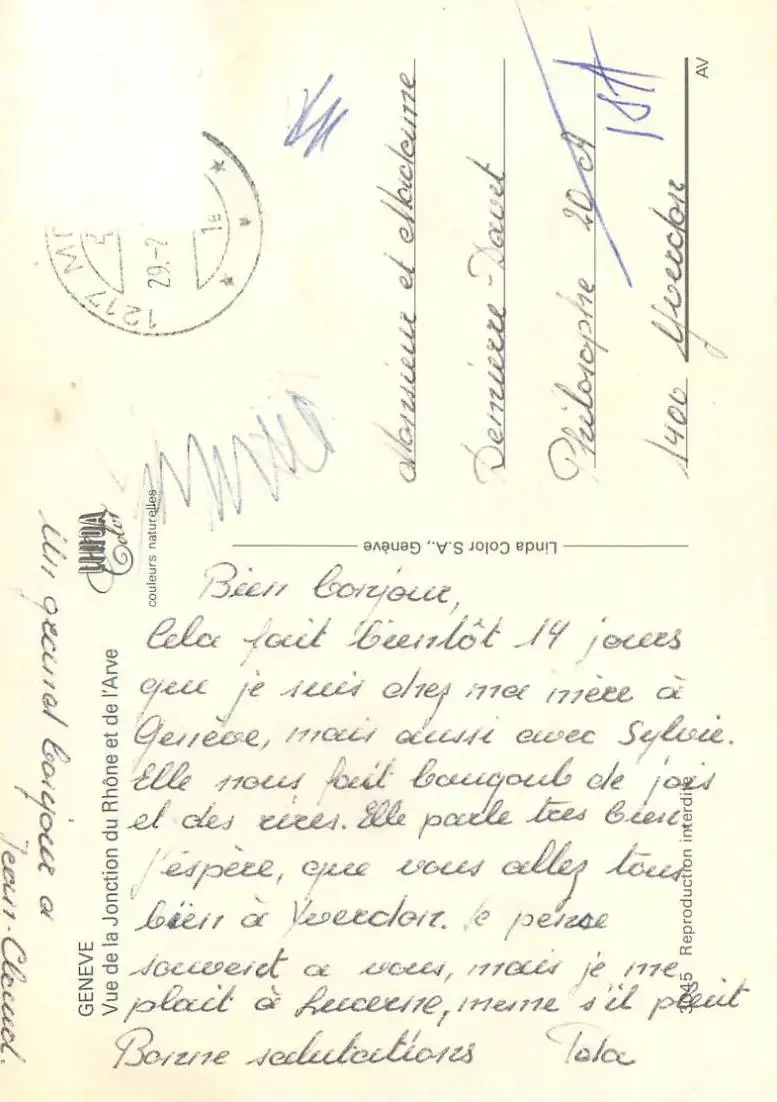 GENEVE
Vue de la Jonction du Rhône et de l'Arve
LINDA
Color
couleurs naturelles
Bien bonjour,
Cela fait bientôt 14 jours
que je suis chez ma mère à
Genève, mais aussi avec Sylvie.
Elle nous fait baugoub de jois
et des rires. Elle parle tres bien.
J'espère, que vous allez tous
bien à Yverdon. Je pense
souvent a vous, mais je me
plait à Lucerne, meme s'il pleut
Bonne salutations
Un grand bonjour a
Jean-Claud.
Linda Color S.A., Genève
3045 Reproduction interdite
1217 M
29.-2
1e
Monsieur et Madame
Dernierre-Davet
Philosophe 20 A
1400 Yverdon
AV